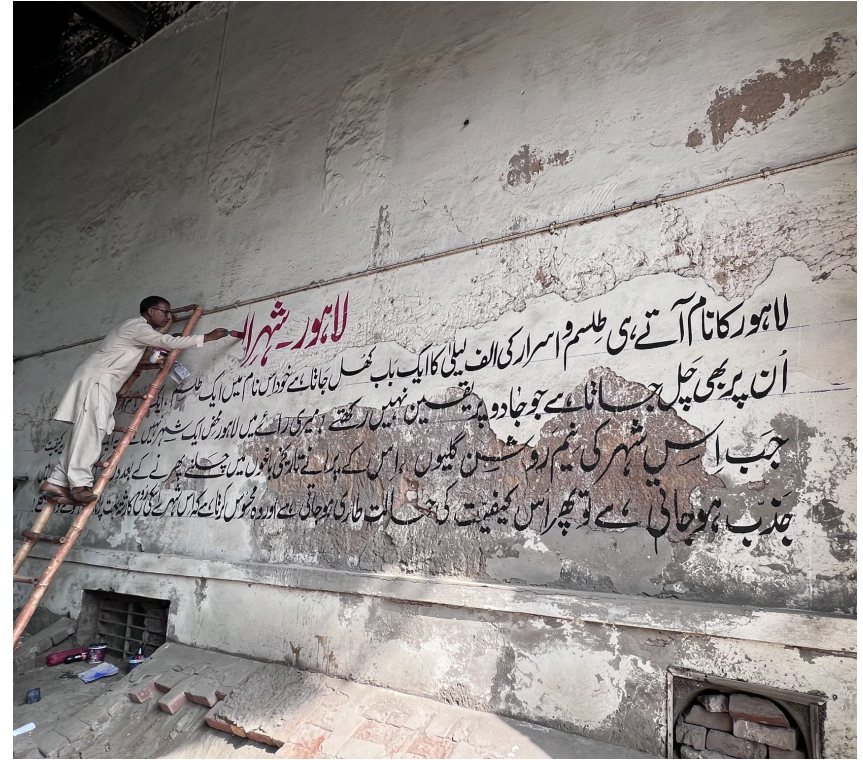 لاہور۔شہرا
لاہور کا نام آتے ہی طلسم و اسرار کی الف لیلیٰ کا ایک باب کھل جاتا ہے خود اس نام میں ایک طلسم ہے
اُن پر بھی چل جاتا ہے جو جادو پر یقین نہیں رکھتے ۔ میری رائے میں لاہور محض ایک شہر نہیں
جب اِس شہر کی نیم روشن گلیوں ، اس کے پرانے تاریخی باغوں میں چلنے پھرنے کے بعد
جذب ہو جاتی ہے تو پھر اس کیفیت کی حالت طاری ہو جاتی ہے اور وہ محسوس کرتا ہے کہ اس شہر کے